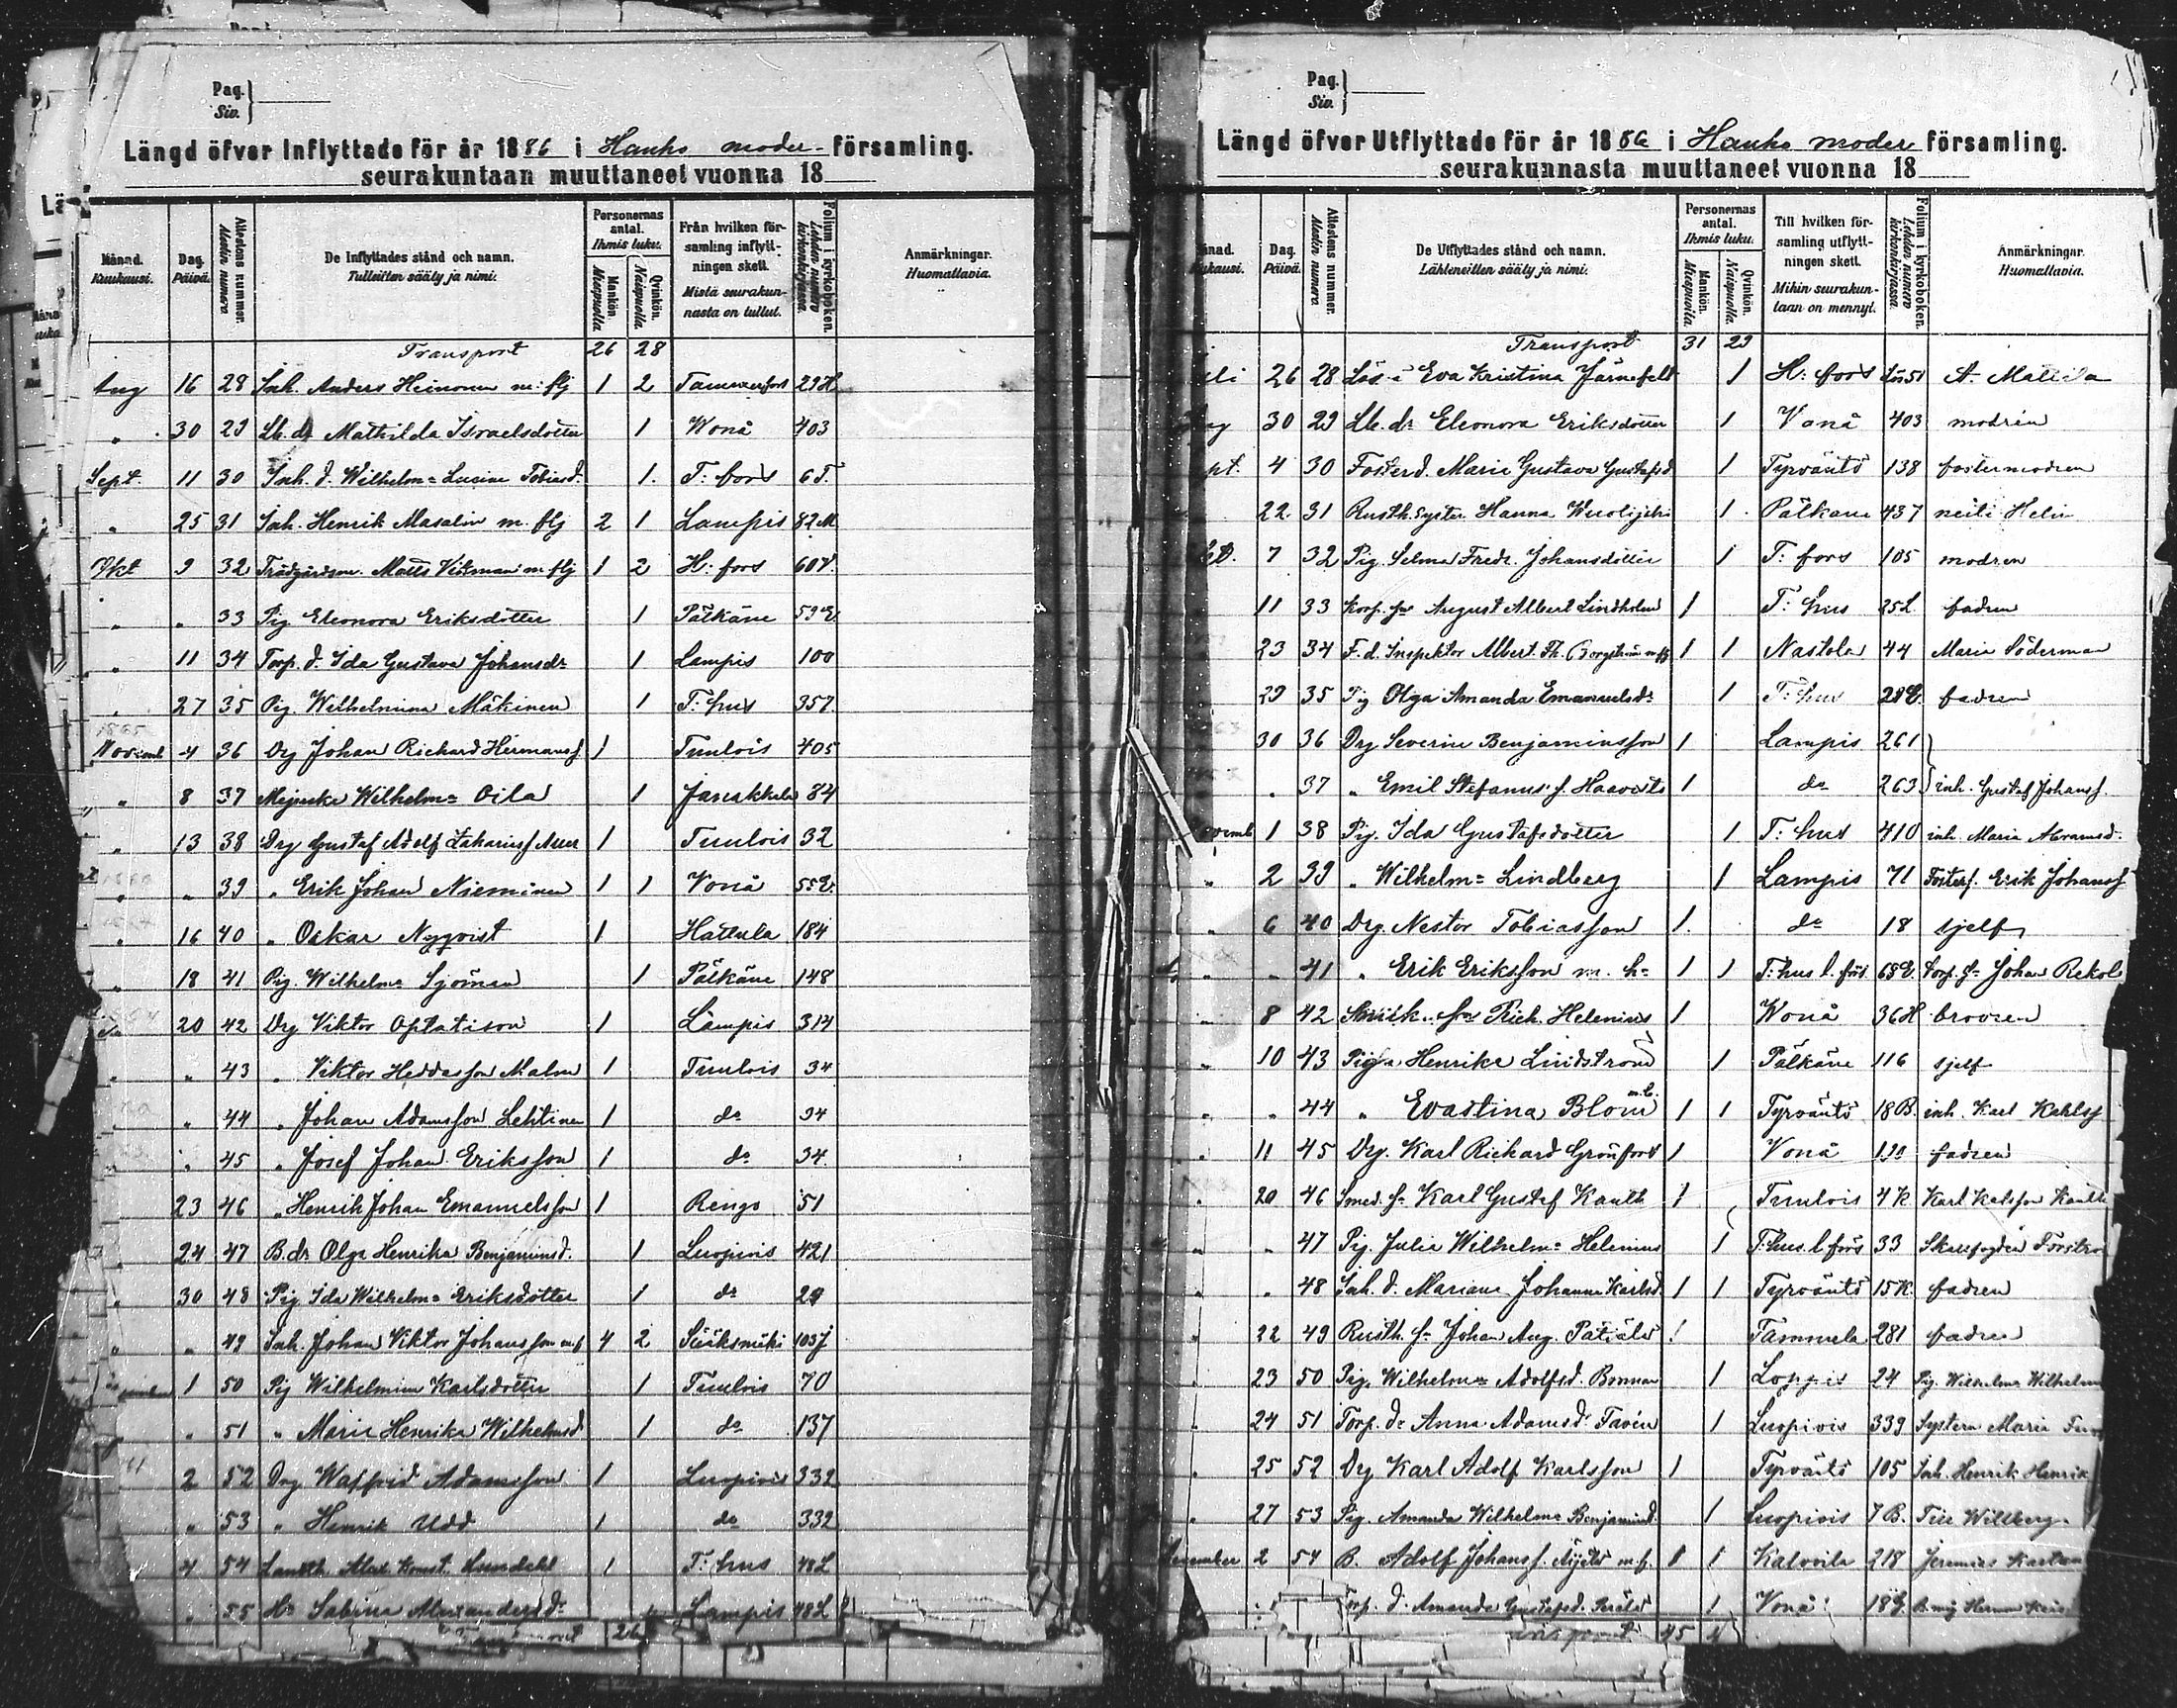 Pag.
Siv.
Längd öfver Inflyttade för år 1886 i Hauho moder- församling.
seurakuntaan muuttaneet vuonna 18
Månad. Kuukausi.
Dag. Päivä.
Attestens nummer. Alestin numero.
De Inflyttades stånd och namn. Tulleitten sääty ja nimi.
Personernas antal. Ihmis luku.
Mankön. Miespuolia.
Qvinkön. Naispuolia.
Från hvilken församling inflyttningen skett. Mistä seurakunnasta on tullut.
Folium i kyrkoboken. Lehden numero kirkonkirjassa.
Anmärkningar. Huomattavia.
Transport 26 28
Aug 16 28 Inh. Anders Heinonen m: flj 1 2 Tammerfors 29H
" 30 29 Lb. dr Mathilda Israelsdotter 1 Wonå 403
Sept. 11 30 Inh. d. Wilhelm= Lucina Tobiasd. 1. T: fors 6T.
" 25 31 Inh. Henrik Masalin m. flj 2 1 Lampis 82M
Okt 9 32 Trädgårdsm. Matts Vidman m flj 1 2 H: fors 60V.
" " 33 Pig Eleonora Eriksdotter 1 Pälkäne 59E.
" 11 34 Torp. d. Ida Gustava Johansdr 1 Lampis 100
" 27 35 Pig. Wilhelmina Mäkinen 1 T: hus 357
Novemb 4 36 Drg Johan Richard Hermanss 1 Tuulois 405
" 8 37 Wilhelm= Oila 1 Janakkala 84
" 13 38 Drg Gustaf Adolf 1 Tuulois 32
" " 39 " Erik Johan Nieminen 1 1 Vonå 55E.
" 16 40 " Oskar Nyqvist 1 Hattula 184
" 18 41 Pig. Wilhelm= Sjöman 1 Pälkäne 148
" 20 42 Drg Viktor 1 Lampis 314
" " 43 " Viktor Malm 1 Tuulois 34
" " 44 " Johan Adamsson Lehtinen 1 do 34
" " 45 " Josef Johan Eriksson 1 do 34.
23 46 " Henrik Johan Emanuelsson 1 Rengo 51
" 24 47 B. dr Olga Henrika Benjaminsd. 1 Luopiois 421
" 30 48 Pig Ida Wilhelm= Eriksdotter 1 do
" " 49 Inh. Johan Viktor Johansson m f 4 2 Sääksmäki 103J
1 50 Pig Wilhelmina Karlsdotter 1 Tuulois 70
" 51 " Maria Henrika Wilhelmsd 1 do 137
2 52 Drg Walfrid Adamsson 1 Luopiois 332
" 53 " Henrik Udd 1 do 332
4 54 1 T: hus 48L
" 55 Sabrina Alexandersdr Lampis 48L
26
Pag.
Siv.
Längd öfver Utflyttade för år 1886 i Hauho moder församling.
seurakunnasta muuttaneet vuonna 18
Dag. Päivä.
Attestens nummer. Alestin numero.
De Utflyttades stånd och namn. Lähteneitten sääty ja nimi.
Personernas antal. Ihmis luku.
Mankön. Miespuolia.
Qvinkön. Naispuolia.
Till hvilken församling utflyttningen skett. Mihin seurakuntaan on mennyt.
Folium i kyrkoboken. Lehden numero kirkonkirjassa.
Anmärkningar. Huomattavia.
Transport 31 29
26 28 Eva Kristina Järnefelt 1 H: fors A. Mattila
30 29 Lb. dr Eleonora Eriksdotter 1 Vonå 403 modren
4 30 Fosterd. Maria Gustava Gustafsd 1 Tyrväntö 138 fostermodren
22 31 Rusth. syster Hanna 1 Pälkäne 437 neiti Helin
7 32 Pig. Selma Fredr. Johansdotter 1 T: fors 105 modren
11 33 Korp. son August Albert Lindholm 1 T: hus 25L fadren
23 34 F. d. Inspektor Albert Th. 1 1 Nastola 44 Maria Söderman
29 35 Pig Olga Amanda Emanuelsdr 1 T: hus 28E. fadren
30 36 Drg Severin Benjaminsson 1 Lampis 261
" 37 " Emil Stefanus s. Haavisto 1 do 263 inh. Gustaf Johanss.
1 38 Pig. Ida Gustafsdotter 1 T: hus 410 inh. Maria Abramsd.
" 2 39 " Wilhelm= Lindberg 1 Lampis 71 Fosterf. Erik Johanss
" 6 40 Drg. Nestor Tobiasson 1. do 18 sjelf
" 41 " Erik Eriksson m. h= 1 1 T: hus l. förs 68E. torp. s= Johan Rekol
" 8 42 Rich. Helenius 1 Wonå 36H brodren
" 10 43 Piga Henrika Lindström 1 Pälkäne 116 sjelf
" " 44 " Evastina Blom m.b. 1 1 Tyrväntö 18B. inh. Karl Karlss
" 11 45 Drg. Karl Richard Grönfors 1 Vonå fadren
" 20 46 Smed. s= Karl Gustaf Kauth 1 Tuulois 4K Karl Karlsson Kauth
" " 47 Pig. Julia Wilhelm= Helenius 1 T: hus l. förs 33
" " 48 Inh. d. Mariana Johanna Karlsd. 1 1 Tyrväntö 15K. fadren
" 22 49 Rusth. s= Johan Aug. 1 Tammela 281 fadren
" 23 50 Pig. Wilhelm= Adolfsd. Bonman 1 Loppis 24 Pig. Wilhelm= Wilhelm
" 24 51 Torp. dr Anna Adamsd. 1 Luopiois 339 Systern Maria
" 25 52 Drg Karl Adolf Karlsson 1 Tyrväntö 105 Inh. Henrik Henrik
" 27 53 Pig. Amanda Wilhelm= Benjaminsd. 1 Luopiois 7B.
December 2 54 B. Adolf Johanss. m. f. 1 1 Kalvola 218 Jeremias
Torp. d. Amanda Gustafsd. 1 Vonå
45